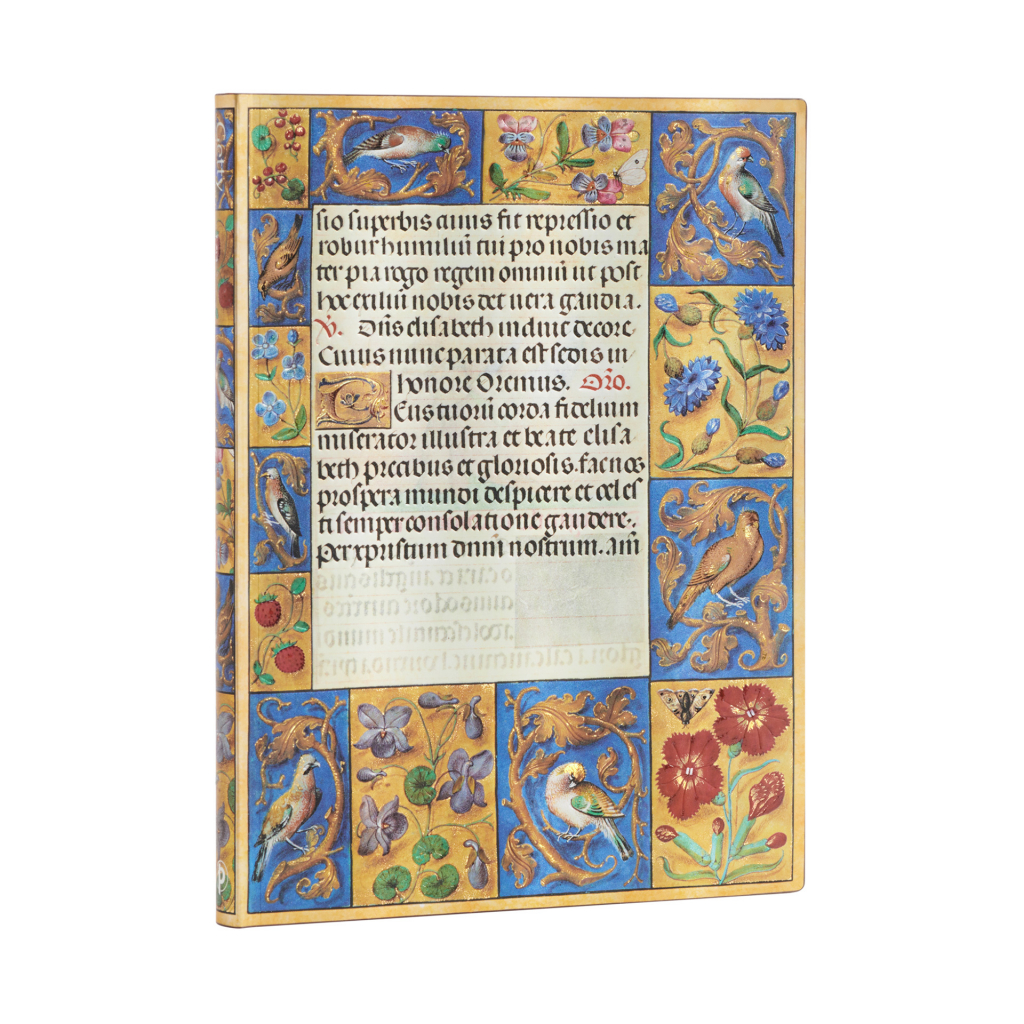 sio superbis cuius fit repressio et
robur humiliū tui pro nobis ma
ter pia rogo regem omniū ut post
hoc exiliū nobis det uera gaudia.
V. Dn̄s elisabeth induit decore
Cuius nunc parata est sedis in
honore Oremus. Or̄o.
Tuorū corda fidelium
miserator illustra et beate elisa
beth precibus et gloriosis. fac nos
prospera mundi despicere et celes
ti semper consolatione gaudere.
Per xpristum dnm̄ nostrum. am̄